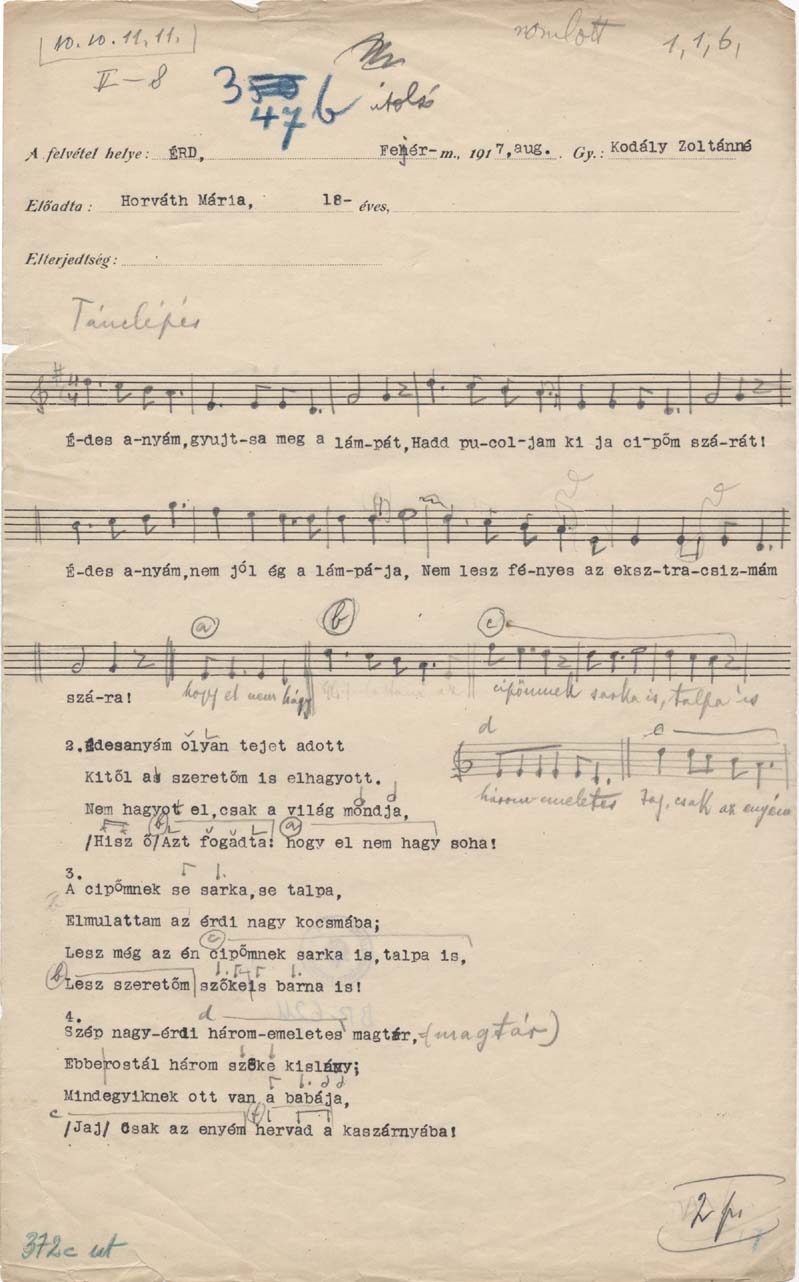 10.10.11.11. nomlott 1,1,6,
V-8 3 47 b utolsó
A felvétel helye: ÉRD, Fejér-m., 1917, aug. Gy.: Kodály Zoltánné
Előadta: Horváth Mária, 18- éves,
Elterjedtség:
Tánclépés
É-des a-nyám,gyujt-sa meg a lám-pát,Hadd pu-col-jam ki ja ci-põm szá-rát!
É-des a-nyám,nem jól ég a lám-pá-ja, Nem lesz fé-nyes az eksz-tra-csiz-mám
a b c
szá-ra! hogy el nem hágy cipőmnek sarka is, talpa is
d e
három-emeletes Jaj, csak az enyém
2.Édesanyám olyan tejet adott
Kitõl a szeretõm is elhagyott.
Nem hagyott el,csak a világ mondja,
b a
/Hisz õ/Azt fogadta: hogy el nem hagy soha!
3.
A cipõmnek se sarka,se talpa,
Elmulattam az érdi nagy kocsmába;
c
Lesz még az én cipõmnek sarka is,talpa is,
b
Lesz szeretõm szõke is barna is!
4. d
Szép nagy-érdi három-emeletes magtár, (magtár)
Ebbe rostál három szõke kislány;
Mindegyiknek ott van a babája,
e
/Jaj/ Csak az enyém hervad a kaszárnyába!
2 pi
372c ut